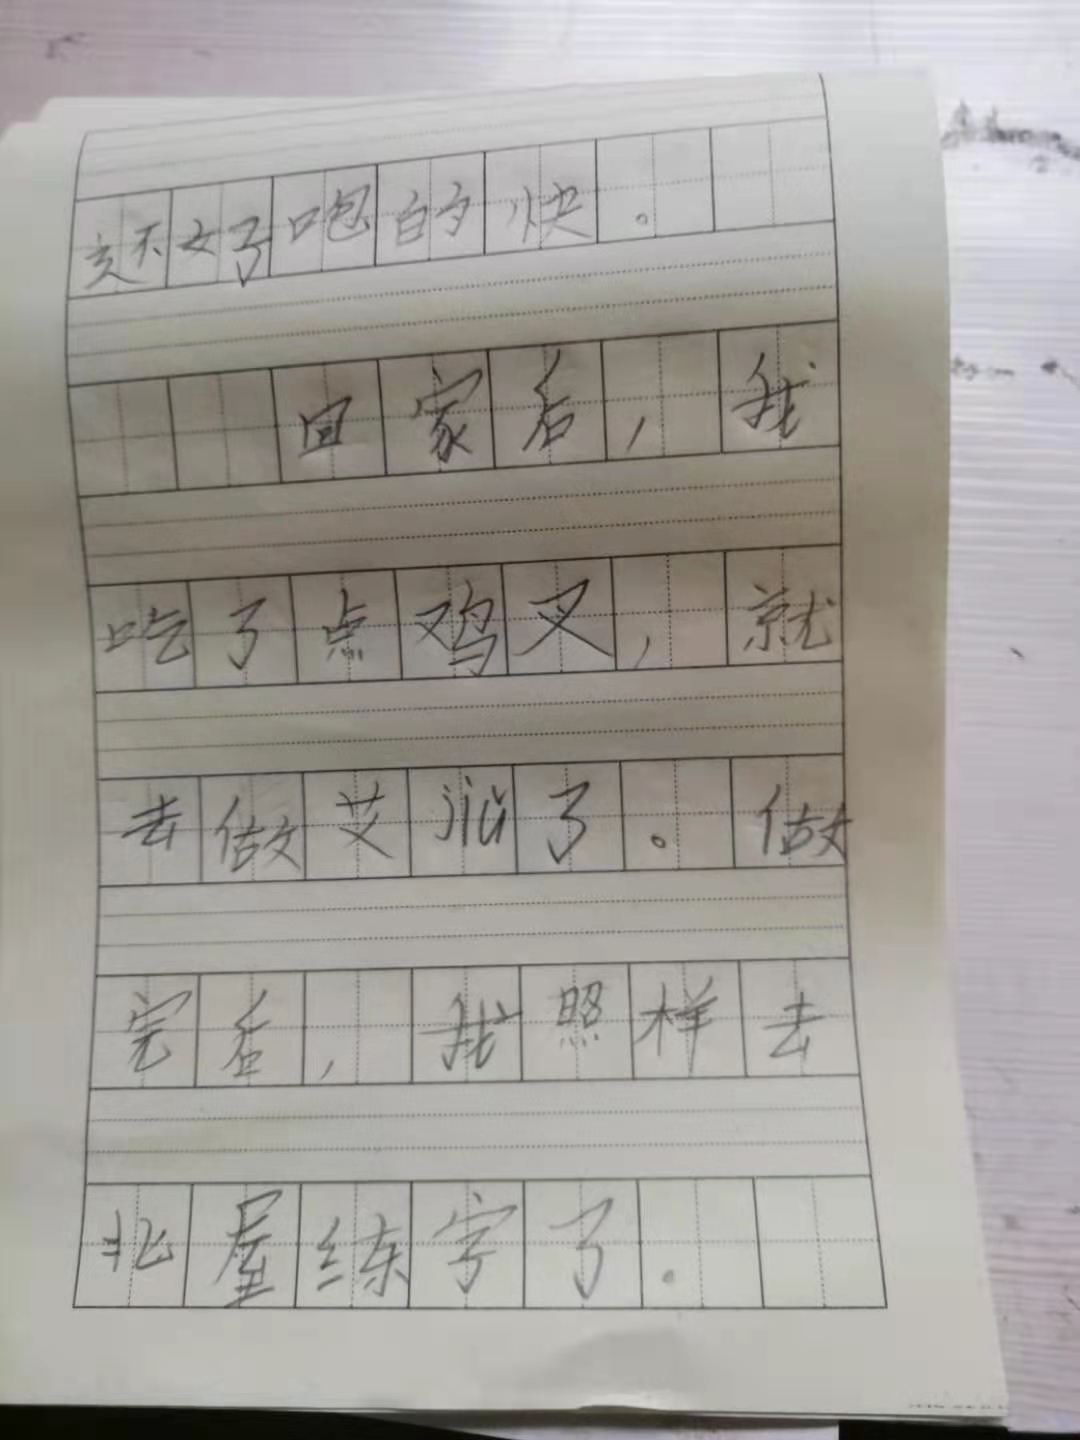 好跑的快。
回家后，我
吃了点鸡叉，就
去做艾灸了。做
完后，我照样去
北屋练字了。